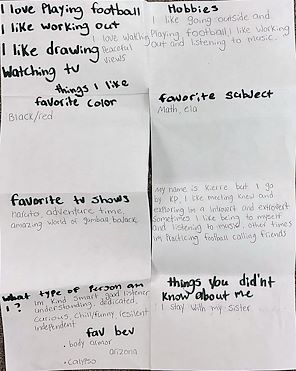 I love Playing football
I like working out
I like drawing
Watching tv
I love watching
Peaceful
views
things I like
Hobbies
I like going outside and
Playing football, I like working
out and listening to music.
favorite color
Black/red
favorite subject
Math, ela
favorite tv shows
naruto, adventure time,
amazing world of gumball
My name is Kierre but I go
by KP, I like meeting knew and
exploring im a introvert and extrovert
sometimes I like being to myself
and listening to music, other times
im facticing football calling friends
what type of person am
I ?
im kind smart, good listener
understanding, dedicated,
curious, chill/funny, resilent
independent
fav bev
• body armor
arizona
• calypso
things you did'nt
know about me
I stay with my sister